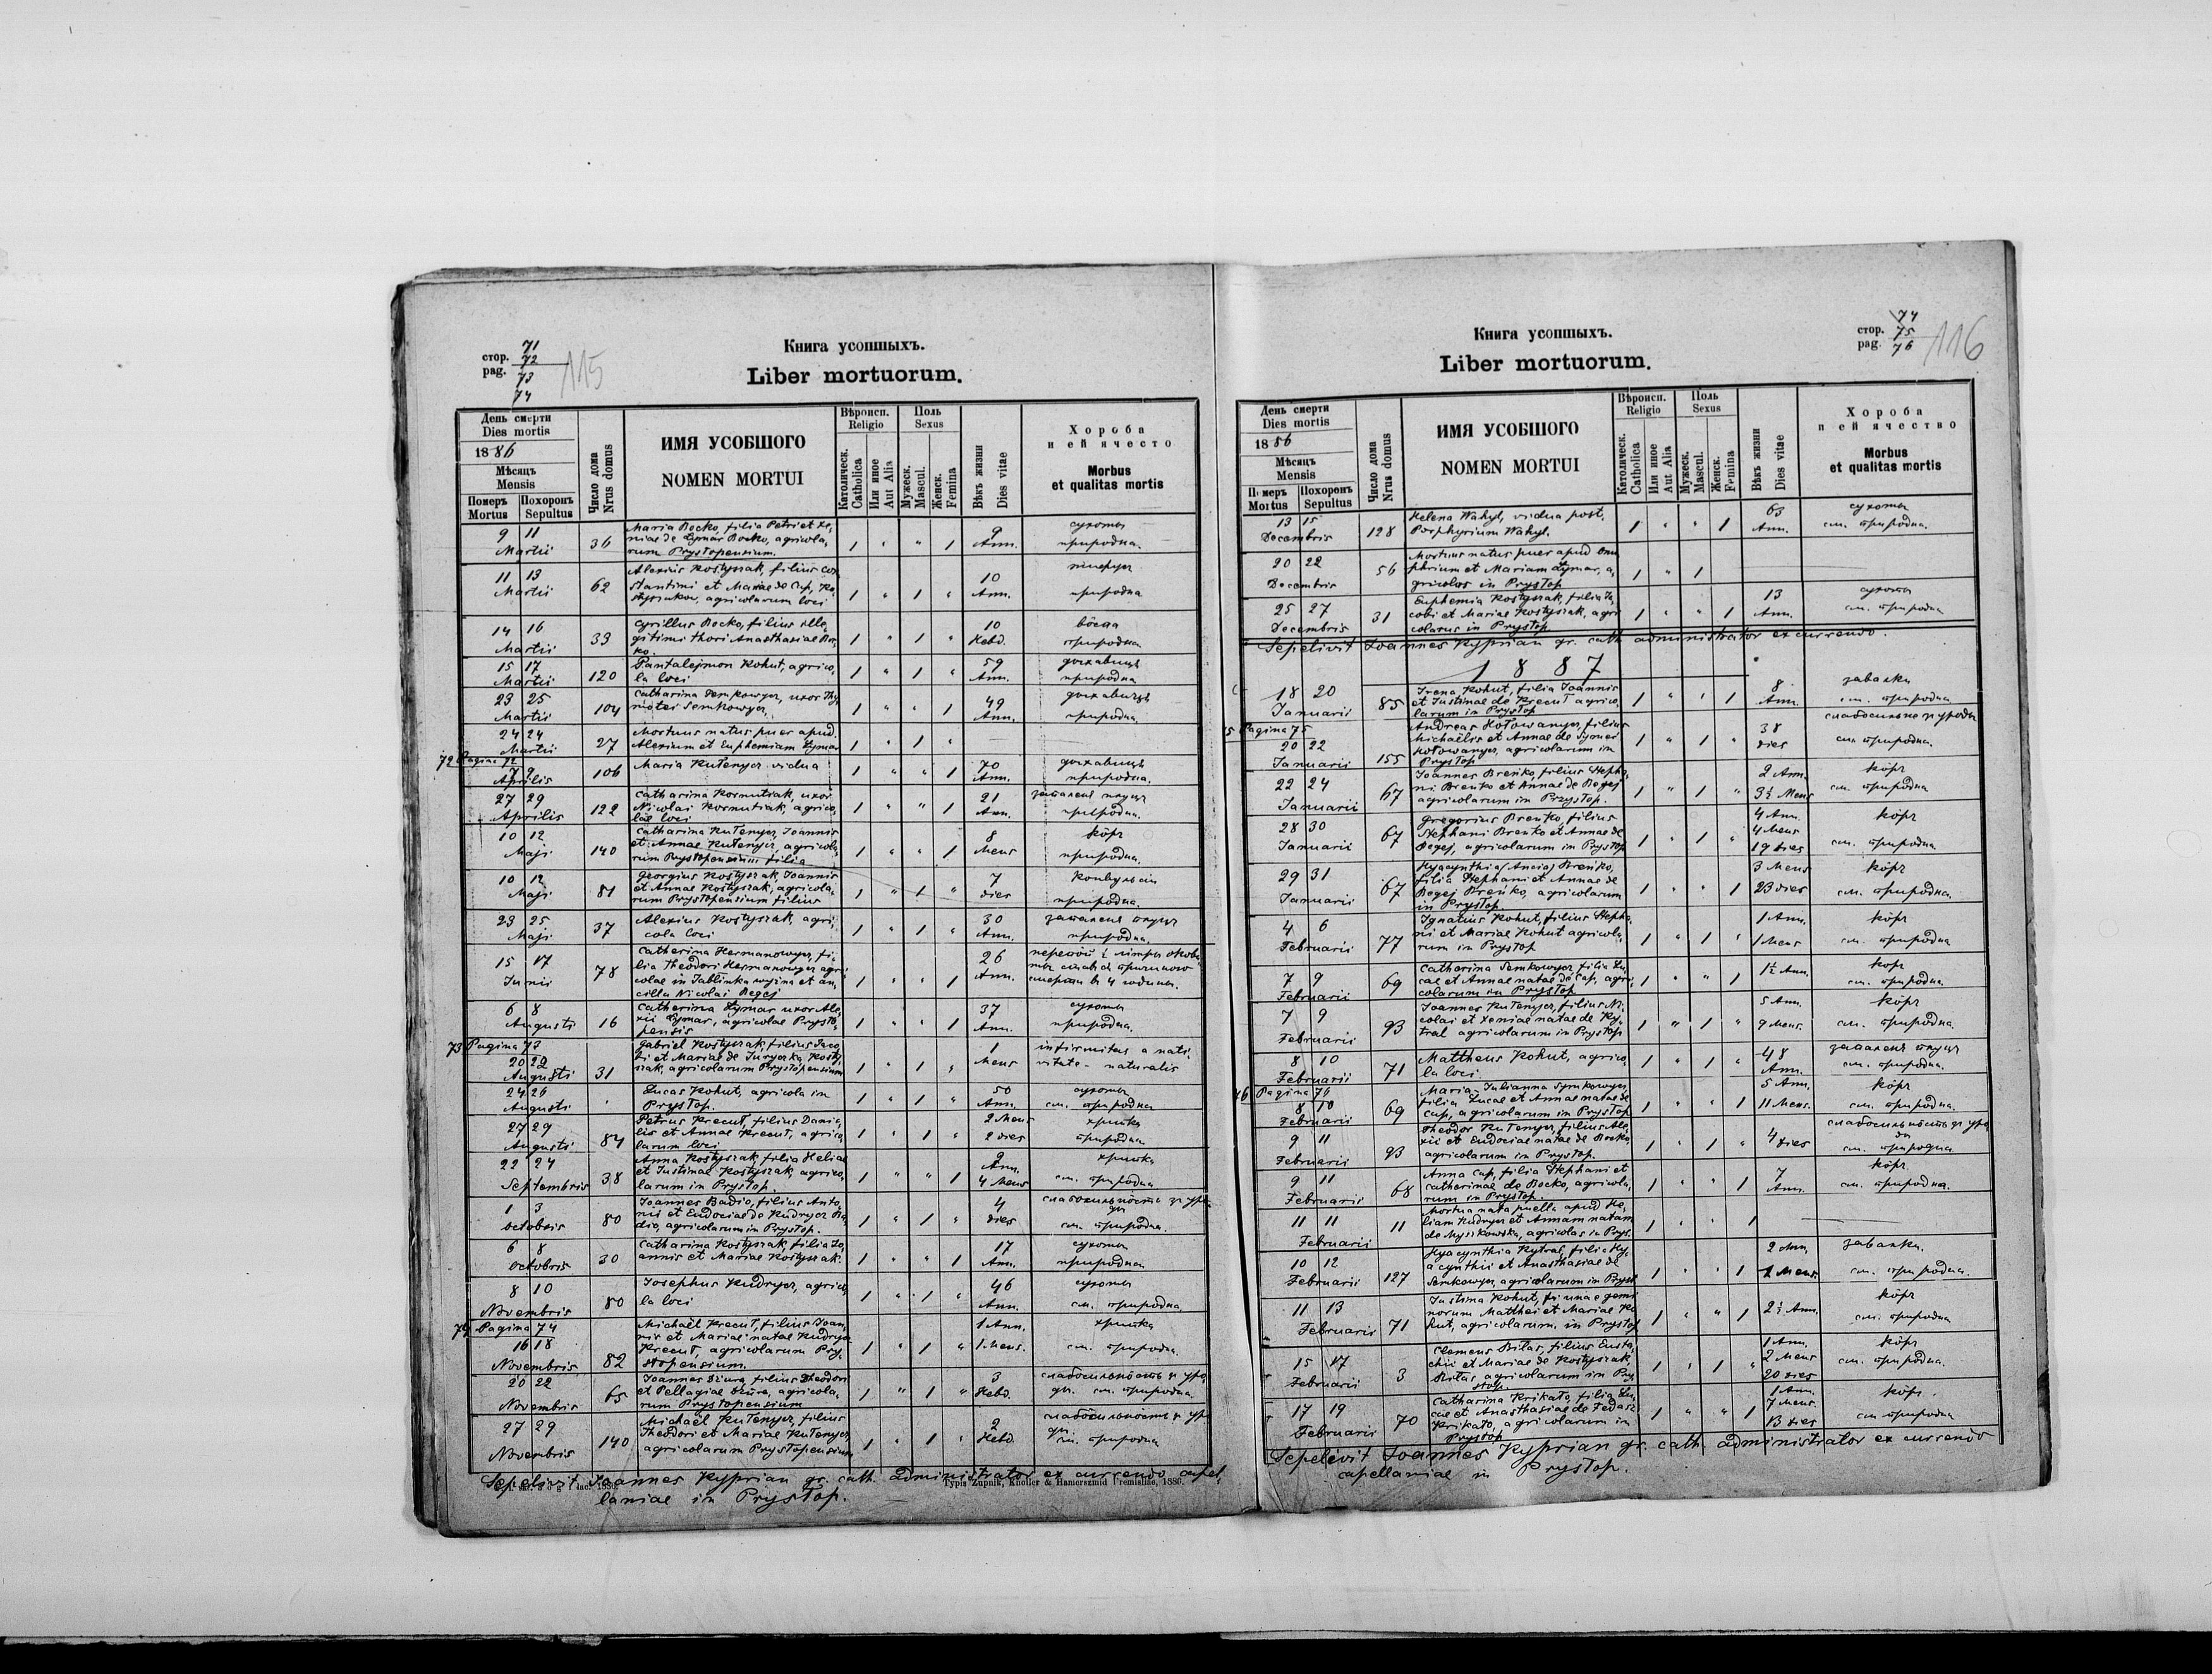 стор. 71
72
pag. 73
74
115
Книга усопшыхъ.
Liber mortuorum.
День смерти
Dies mortis
1886
Мѣсяцъ
Mensis
Померъ Похоронъ
Mortus Sepultus
Число дома
Nrus domus
ИМЯ УСОБШОГО
NOMEN MORTUI
Вѣроисп.
Religio
Католическ.
Catholica
Или иное
Aut Alia
Поль
Sexus
Мужеск.
Mascul.
Женск.
Femina
Вѣкъ жизни
Dies vitae
Хороба
и ей ячесто
Morbus
et qualitas mortis
9 11 Martii 36
Maria Bocko, filia Petri et Xe,
niae de Dymar Bocko, agricola,
rum Prystopensium.
1 1 9 Ann.
сухоты
природна.
11 13 Martii 62
Alexius Kostyszak, filius Con
stantini et Mariae de Cap, Ko,
agricolarum loci
1 1 10 Ann.
природна
14 16 Martii 33
Cyrillus Bocko, filius ille,
gitimi thori Anasthasiae Boc
ko.
1 1 10 Hebd.
природна.
15 17 Martii 120
Pantalejmon Kohut, agrico,
la loci
1 1 59 Ann.
дыхавиця
природна
23 25 Martii 104
Catharina Semkowycz, uxor Thy,
motei Semkowycz,
1 1 49 Ann.
дыхавиця
природна.
24 24 Martii 27
Mortuus natus puer apud.
Alexium et Euphemiam Dymar
1 1
72 Pagina 72
7 9 Aprilis 106
Maria Kutenycz vidua
1 1 70 Ann.
дыхавиця
природна.
27 29 Aprilis 122
Catharina Kornutiak, uxor
Nicolai Kornutiak, agrico,
lae loci
1 1 21 Ann.
запаленя
природна.
10 12 Maji 140
Catharina Kutenycz, Joannis
et Annae Kutenycz, agricola,
rum Prystopensium filia
1 1 8 Mens
кôръ
природна.
10 12 Maji 81
Georgius Kostyszak, Joannis
et Annae Kostyszak, agricola,
rum Prystopensium filius
1 1 7 dies
конвульсіи
природна.
23 25 Maji 37
Alexius Kostyszak, agri,
cola loci
1 1 30 Ann.
запаленя
природна.
15 17 Junii 78
Catherina Hermanowycz, fi,
lia Theodori Hermanowycz agri
colae in Jablinka wyzna et an,
cilla Nicolai Begej
1 1 26 Ann.
6 8 Augusti 16
Catherina Dymar uxor Ale,
xii Dymar, agricolae Prysto,
pensis
1 1 37 Ann.
сухоты
природна.
73 Pagina 73
20 22 Augusti 31
Gabriel Kostyszak, filius Jaco,
bi et Mariae de Juryczka Kosty,
szak, agricolarum Prystopensium
1 1 1 Mens
infirmitas a nati,
vitate - naturalis
24 26 Augusti
Lucas Kohut, agricola in
Prystop.
1 1 50 Ann.
сухоты
см. природна
27 29 Augusti 84
Petrus Krecut, filius Danie,
lis et Annae Krecut, agrico,
larum loci
1 1 2 Mens 2 dies
природна
22 24 Septembris 38
Anna Kostyszak, filia Heliae
et Justinae Kostyszak, agrico,
larum in Prystop.
1 1 9 Ann. 4 Mens
см. природна
1 3 Octobris 80
Joannes Badio, filius Anto,
nii et Eudociae de Kudrycz Ba,
dio, agricolarum in Prystop.
1 1 4 dies
слабосильность
см. природна.
6 8 Octobris 30
Catharina Kostyszak, filia Jo,
annis et Mariae Kostyszak.
1 1 17 Ann.
сухоты
природна
8 10 Novembris 80
Josephus Kudrycz, agrico,
la loci
1 1 46 Ann.
сухоты
см. природна
74 Pagina 74
16 18 Novembris 82
Michaël Krecut, filius Joan,
nis et Mariae natae Kudrycz
Krecut, agricolarum Pry,
stopensium.
1 1 1 Ann. 1 Mens.
см. природна.
20 22 Novembris 65
Joannes Dziura, filius Theodori
et Pellagiae Dziura, agricola,
rum Prystopensium
1 1 3 Hebd.
слабосильность
см. природна
27 29 Novembris 140
Michaël Kutenycz, filius
Theodori et Mariae Kutenycz,
agricolarum Prystopensium
1 1 2 Hebd.
слабосильность
см. природна
Sepelivit Joannes Kyprian gr. cath. administrator ex currendo capel,
laniae in Prystop.
Typis Żupnik, Knoller & Hamerszmid Premisliae, 1880.
стор. 74
75
pag. 76
116
Книга усопшыхъ.
Liber mortuorum.
День смерти
Dies mortis
1886
Мѣсяцъ
Mensis
Померъ Похоронъ
Mortus Sepultus
Число дома
Nrus domus
ИМЯ УСОБШОГО
NOMEN MORTUI
Вѣроисп.
Religio
Католическ.
Catholica
Или иное
Aut Alia
Поль
Sexus
Мужеск.
Mascul.
Женск.
Femina
Вѣкъ жизни
Dies vitae
Хороба
и ей ячество
Morbus
et qualitas mortis
13 15 Decembris 128
Helena Wahyl, vidua post,
Porphyrium Wahyl.
1 1 63 Ann.
сухоты
см. природна.
20 22 Decembris 56
Mortuus natus puer apud Onu
phrium et Mariam Dymar, a,
gricolas in Prystop
1 1
25 27 Decembris 31
Euphemia Kostyszak, filia Ja,
cobi et Mariae Kostyszak, agri
colarum in Prystop
1 1 13 Ann.
сухоты
см. природна
Sepelivit Joannes Kyprian gr. cath administrator ex currendo.
1887
18 20 Januarii 85
Irena Kohut, filia Joannis
et Justinae de Krecut agrico,
larum in Prystop
1 1 8 Ann.
завалки
см. природна
Pagina 75
20 22 Januarii 155
Andreas Hotowanycz, filius
Michaëlis et Annae de Dymar
Hotowanycz, agricolarum in
Prystop
1 1 38 dies
см. природна.
22 24 Januarii 67
Joannes Breńko, filius Stepha,
ni Breńko et Annae de Begej
agricolarum in Przystop.
1 1 2 Ann. 3½ Mens
кôръ
см. природна
28 30 Januarii 67
Gregorius Breńko, filius
Stephani Breńko et Annae de
Begej, agricolarum in Prystop
1 1 4 Ann. 4 Mens 19 dies
кôръ
см. природна.
29 31 Januarii 67
Hyacynthia (Ancia) Breńko,
filia Stephani et Annae de
Begej Breńko, agricolarum
in Prystop.
1 1 3 Mens 23 dies
кôръ
см. природна.
4 6 Februarii 77
Ignatius Kohut, filius Stepha,
ni et Mariae Kohut agricola,
rum in Prystop
1 1 1 Ann. 1 Mens
кôръ
см. природна
7 9 Februarii 69
Catharina Semkowycz, filia Lu,
cae et Annae natae de Cap, agri,
colarum in Prystop
1 1 1½ Ann.
кôръ
см. природна.
7 9 Februarii 93
Joannes Kutenycz, filius Ni,
colai et Xeniae natae de Ky,
tral agricolarum in Prystop
1 1 5 Ann. 9 Mens.
кôръ
см. природна.
8 10 Februarii 71
Mattheus Kohut, agrico,
la loci.
1 1 48 Ann.
запаленя
см. природна.
76 Pagina 76
8 10 Februarii 69
Maria-Julianna Symkowycz
filia Lucae et Annae natae de
Cap, agricolarum in Prystop
1 1 5 Ann. 11 Mens.
кôръ
см. природна.
9 11 Februarii 93
Theodor Kutenycz, filius Ale,
xii et Eudociae natae de Bocko,
agricolarum in Prystop.
1 1 4 dies
слабосильность
см. природна
9 11 Februarii 68
Anna Cap, filia Stephani et
Catherinae de Bocko, agricola,
rum in Prystop.
1 1 7 Ann.
кôръ
см. природна.
11 11 Februarii 11
Mortua nata puella apud He,
liam Kudrycz et Annam natam
de Myszkowska, agricolas in Prys.
1 1
10 12 Februarii 127
Hyacynthia Kytral, filia Hy,
acynthii et Anasthasiae de
Semkowycz, agricolarum in Pryst
1 1 2 Ann. 1 Mens.
завалки.
см. природна.
11 13 Februarii 71
Justina Kohut, fi unae gemi
norum Matthei et Mariae Ko
hut, agricolarum, in Prystop
1 1 2½ Ann.
кôръ
см. природна
15 17 Februarii 3
Clemens Bilas, filius Eusta,
chii et Mariae de Kostyszak,
Bilas, agricolarum in Pry,
stop.
1 1 1 Ann. 2 Mens 20 dies
кôръ
см. природна.
17 19 Februarii 70
Catharina Krikato, filia Lu,
cae et Anasthasiae de Fedasz
Krikato, agricolarum in
Prystop
1 1 1 Ann. 7 Mens. 13 dies
кôръ.
см природна
Sepelivit Joannes Kyprian gr. cath. administrator ex currendo
capellaniae in Prystop.